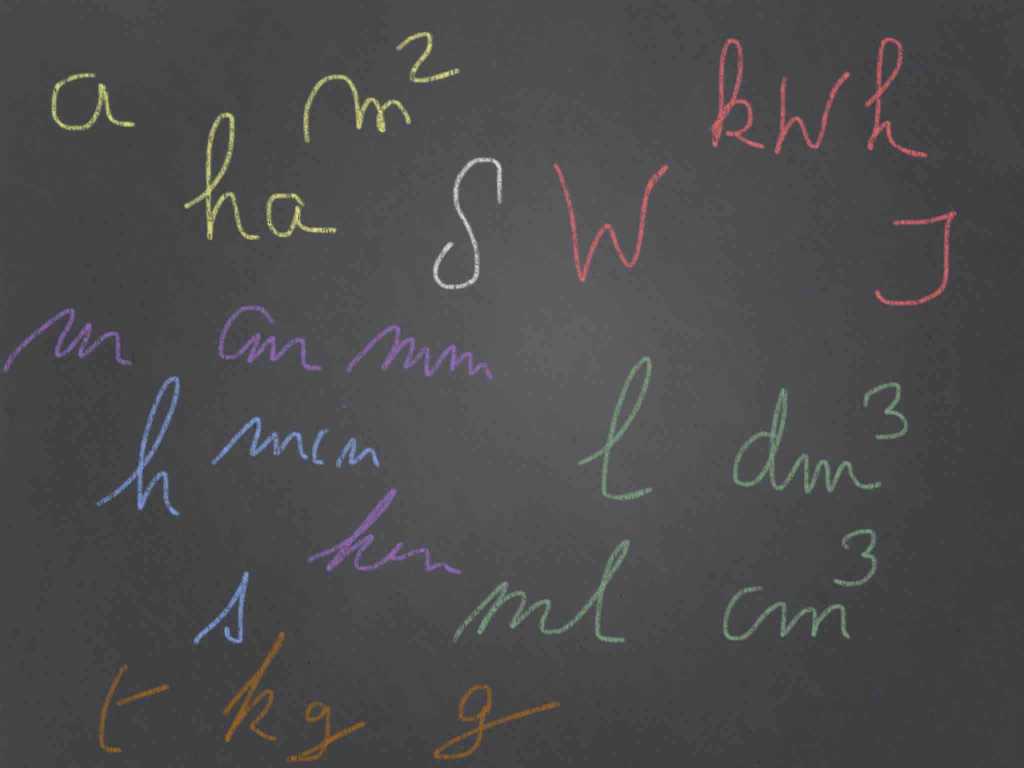 a m² kWh
ha S W J
m cm mm
h min l dm³
km
s ml cm³
t kg g